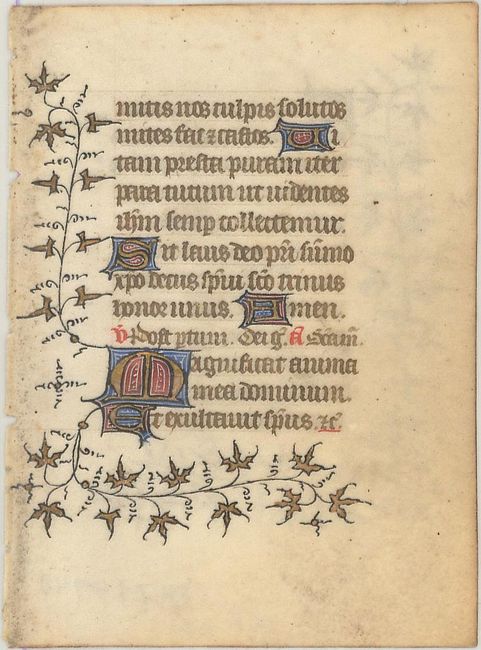 mitis nos culpis solutos
mites fac ⁊ castos. Vi
tam presta puram iter
para tutum ut uidentes
ihm semp collectemur.
Sit laus deo pri sūmo
xpo decus spui sco trinus
honor unus. Amen.
V Post ptum. Dei g. A Scām.
Magnificat anima
mea dominum.
Et exultauit spus ⁊c̄.